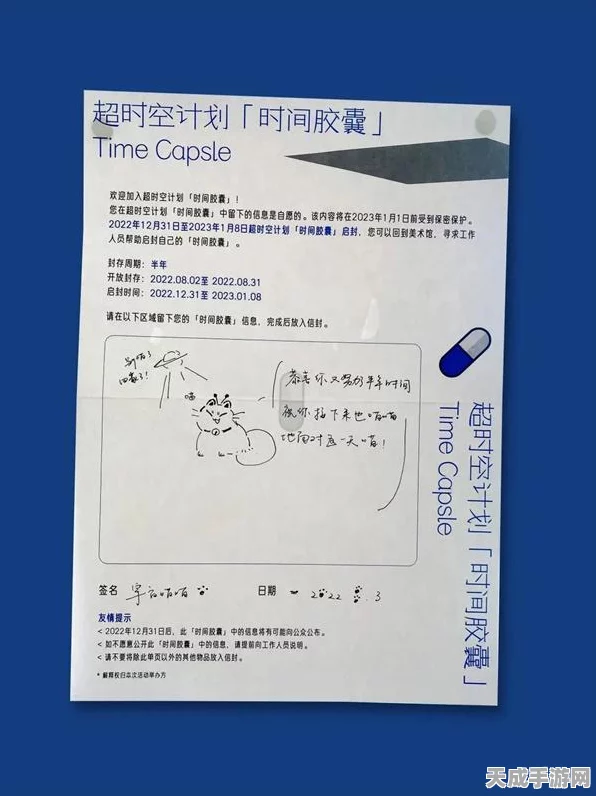 超时空计划「时间胶囊」
Time Capsle
欢迎加入超时空计划「时间胶囊」!
您在超时空计划「时间胶囊」中留下的信息是自愿的。该内容将在2023年1月1日前受到保密保护。
2022年12月31日至2023年1月8日超时空计划「时间胶囊」启封,您可以回到美术馆,寻求工作
人员帮助启封自己的「时间胶囊」。
封存周期:半年
开放封存:2022.08.02至 2022.08.31
启封时间:2022.12.31至 2023.01.08
请在以下区域留下您的「时间胶囊」信息,完成后放入信封。
别喵了
回家了!
喵
恭喜你又努力半年时间
祝你接下来也喵喵
地面对每一天喵!
签名
喵喵
日期
2022 3
友情提示
< 2022年12月31日后,此「时间胶囊」中的信息将有可能向公众公布。
< 如不愿意公开此「时间胶囊」中的信息,请提前向工作人员说明。
< 请不要将除此单页以外的其他物品放入信封。
* 解释权归本次活动举办方
超时空计划「时间胶囊」
Time Capsle
天成手游网